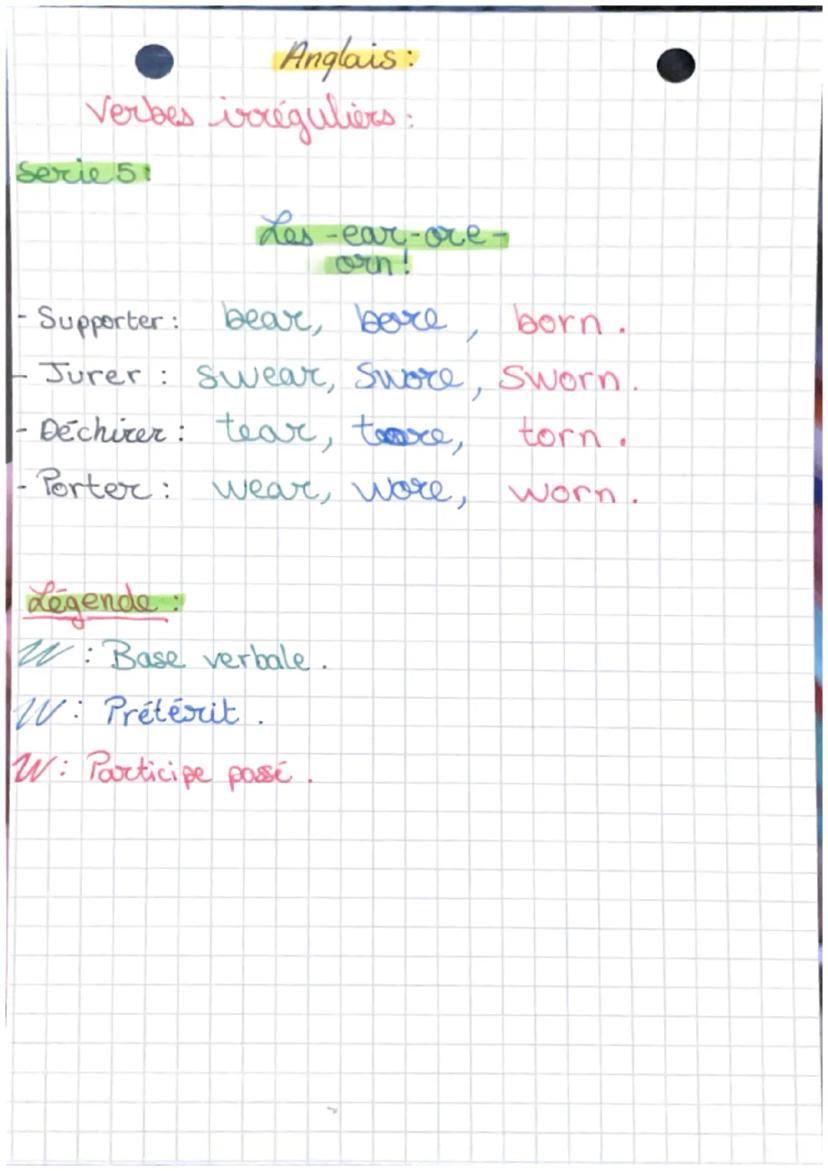 Anglais :
Verbes irréguliers :
Serie 5 :
Les -ear-ore-
orn !
- Supporter : bear, bore, born.
- Jurer : swear, swore, sworn.
- Déchirer : tear, tore, torn.
- Porter : wear, wore, worn.
Légende :
W : Base verbale.
W : Prétérit.
W : Participe passé.